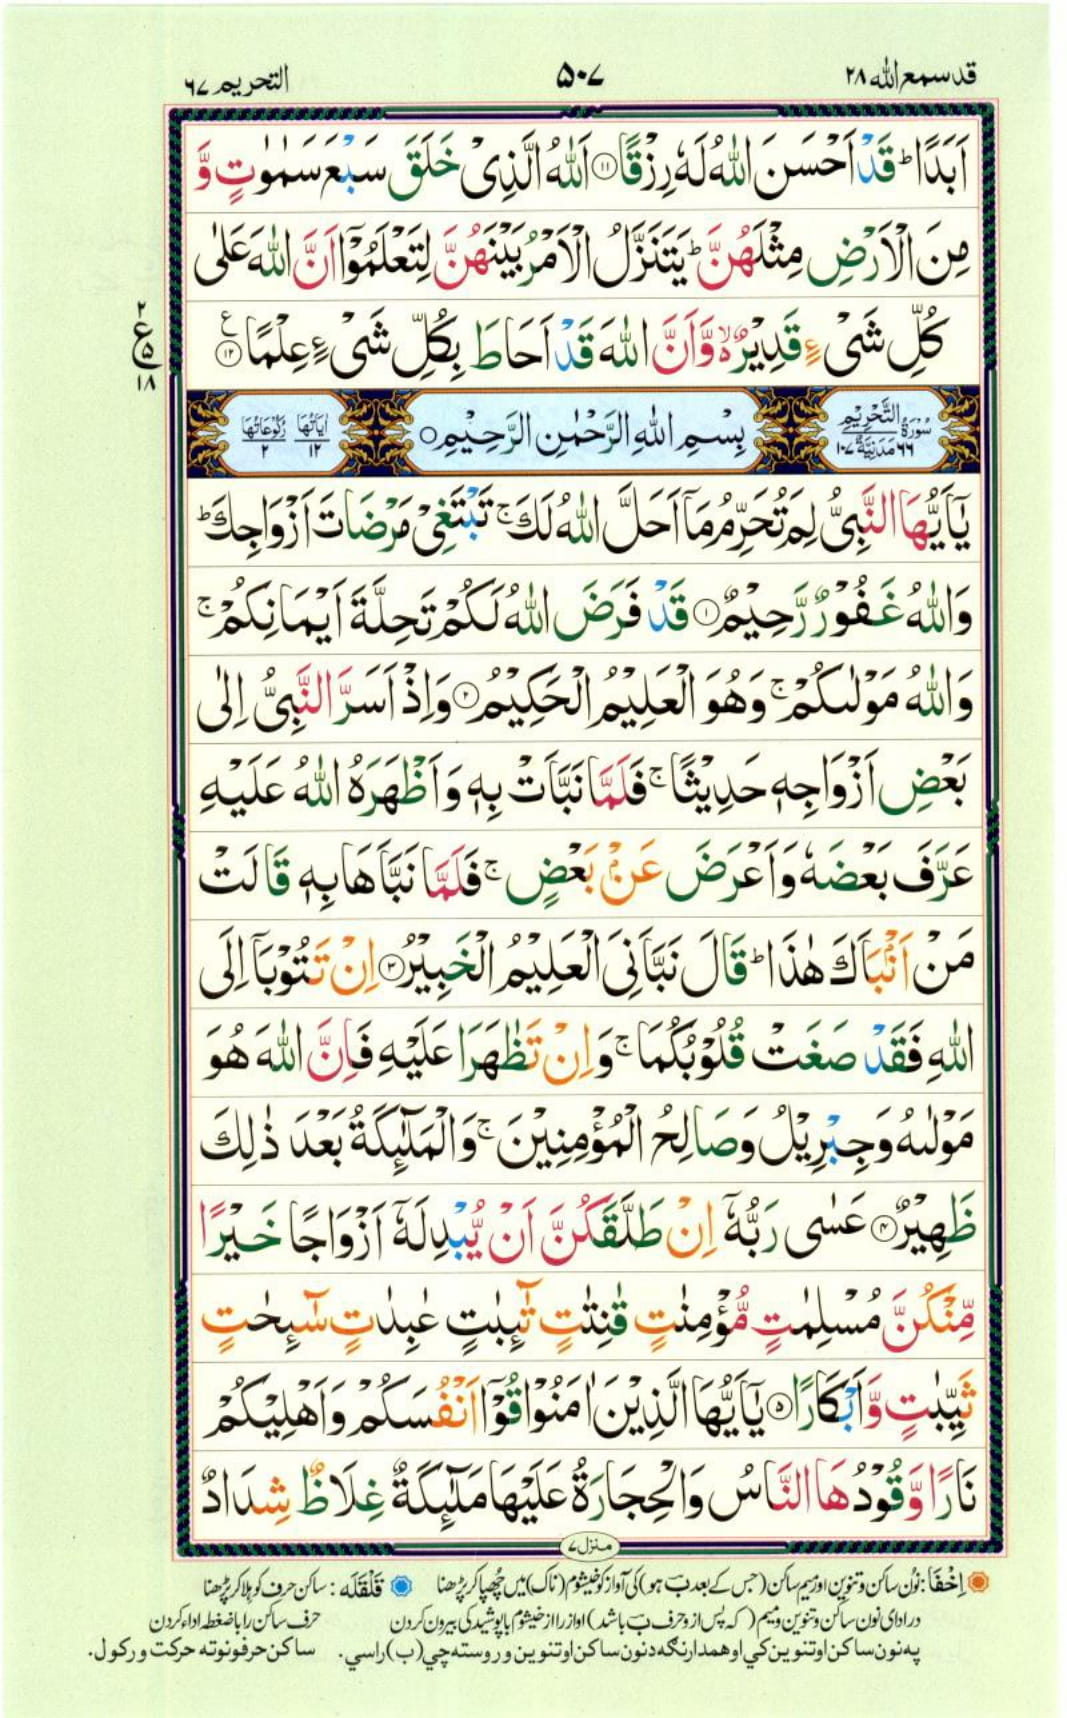 قد سمع الله ۲۸
۵۰۷
التحریم ۶۷
اَبَدًا ؕ قَدْ اَحْسَنَ اللّٰهُ لَهٗ رِزْقًا ﴿۱۱﴾ اَللّٰهُ الَّذِیْ خَلَقَ سَبْعَ سَمٰوٰتٍ وَّ
مِنَ الْاَرْضِ مِثْلَهُنَّ ؕ یَتَنَزَّلُ الْاَمْرُ بَیْنَهُنَّ لِتَعْلَمُوْۤا اَنَّ اللّٰهَ عَلٰی
كُلِّ شَیْءٍ قَدِیْرٌ ۙ۬ وَّ اَنَّ اللّٰهَ قَدْ اَحَاطَ بِكُلِّ شَیْءٍ عِلْمًا ﴿۱۲﴾ ع
۲
ع
۵
۱۸
سُوْرَةُ التَّحْرِیْمِ
۶۶ مَدَنِیَّةٌ ۱۰۷
بِسْمِ اللّٰهِ الرَّحْمٰنِ الرَّحِیْمِ ○
اٰیَاتُهَا ۱۲
رُكُوْعَاتُهَا ۲
یٰۤاَیُّهَا النَّبِیُّ لِمَ تُحَرِّمُ مَاۤ اَحَلَّ اللّٰهُ لَكَ ۚ تَبْتَغِیْ مَرْضَاتَ اَزْوَاجِكَ ؕ
وَ اللّٰهُ غَفُوْرٌ رَّحِیْمٌ ﴿۱﴾ قَدْ فَرَضَ اللّٰهُ لَكُمْ تَحِلَّةَ اَیْمَانِكُمْ ۚ
وَ اللّٰهُ مَوْلٰىكُمْ ۚ وَ هُوَ الْعَلِیْمُ الْحَكِیْمُ ﴿۲﴾ وَ اِذْ اَسَرَّ النَّبِیُّ اِلٰی
بَعْضِ اَزْوَاجِهٖ حَدِیْثًا ۚ فَلَمَّا نَبَّاَتْ بِهٖ وَ اَظْهَرَهُ اللّٰهُ عَلَیْهِ
عَرَّفَ بَعْضَهٗ وَ اَعْرَضَ عَنْۢ بَعْضٍ ۚ فَلَمَّا نَبَّاَهَا بِهٖ قَالَتْ
مَنْ اَنْۢبَاَكَ هٰذَا ؕ قَالَ نَبَّاَنِیَ الْعَلِیْمُ الْخَبِیْرُ ﴿۳﴾ اِنْ تَتُوْبَاۤ اِلَی
اللّٰهِ فَقَدْ صَغَتْ قُلُوْبُكُمَا ۚ وَ اِنْ تَظٰهَرَا عَلَیْهِ فَاِنَّ اللّٰهَ هُوَ
مَوْلٰىهُ وَ جِبْرِیْلُ وَ صَالِحُ الْمُؤْمِنِیْنَ ۚ وَ الْمَلٰٓئِكَةُ بَعْدَ ذٰلِكَ
ظَهِیْرٌ ﴿۴﴾ عَسٰی رَبُّهٗۤ اِنْ طَلَّقَكُنَّ اَنْ یُّبْدِلَهٗۤ اَزْوَاجًا خَیْرًا
مِّنْكُنَّ مُسْلِمٰتٍ مُّؤْمِنٰتٍ قٰنِتٰتٍ تٰٓئِبٰتٍ عٰبِدٰتٍ سٰٓئِحٰتٍ
ثَیِّبٰتٍ وَّ اَبْكَارًا ﴿۵﴾ یٰۤاَیُّهَا الَّذِیْنَ اٰمَنُوْا قُوْۤا اَنْفُسَكُمْ وَ اَهْلِیْكُمْ
نَارًا وَّ قُوْدُهَا النَّاسُ وَ الْحِجَارَةُ عَلَیْهَا مَلٰٓئِكَةٌ غِلَاظٌ شِدَادٌ
منزل۷
اِخْفَا: نون ساکن و تنوین اور میم ساکن (جس کے بعد ب ہو) کی آواز کو خیشوم (ناک) میں چھپا کر پڑھنا قَلْقَلَه: ساکن حرف کو ہلا کر پڑھنا
در ادای نون ساکن و تنوین و میم (که پس از و حرف ب باشد) اواز را از خیشوم با پوشیدگی بیرون کردن حرف ساکن را با ضغطه اداء کردن
په نون ساکن او تنوین کي او همدارنګه د نون ساکن او تنوین وروسته چي (ب) راسي. ساکن حرفونو ته حرکت ورکول.